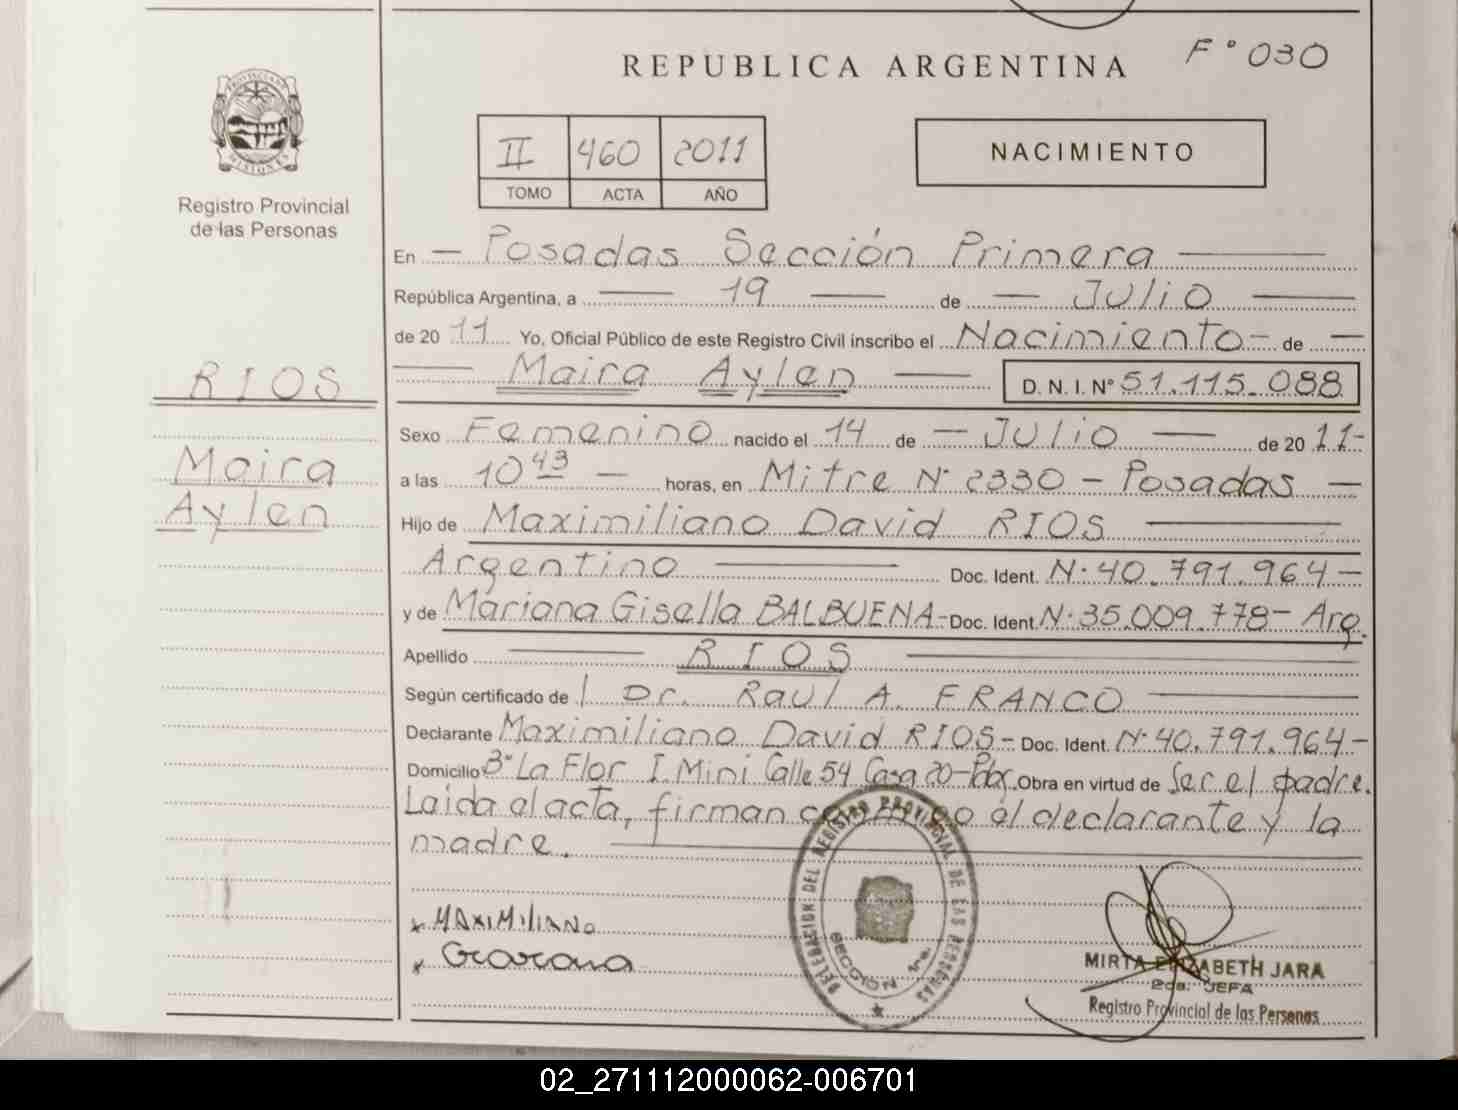 F° 030
REPUBLICA ARGENTINA
PROVINCIA DE MISIONES
Registro Provincial
de las Personas
II 460 2011
TOMO ACTA AÑO
NACIMIENTO
En — Posadas Sección Primera —
República Argentina, a — 19 — de — Julio —
de 20 11 Yo, Oficial Público de este Registro Civil inscribo el Nacimiento - de —
— Maira Aylen — D. N. I. Nº 51.115.088
RIOS
Maira
Aylen
Sexo Femenino nacido el 14 de — Julio — de 20 11-
a las 10 43 — horas, en Mitre N° 2330 - Posadas —
Hijo de Maximiliano David RIOS —
Argentino — Doc. Ident. N·40.791.964 —
y de Mariana Gisella BALBUENA- Doc. Ident. N·35.009.778- Arg.
Apellido — RIOS —
Según certificado de Dr. Raul A. FRANCO —
Declarante Maximiliano David RIOS - Doc. Ident. N·40.791.964 —
Domicilio B° La Flor I. Mini Calle 54 Casa 20-Pdas. Obra en virtud de Ser el padre.
Laida el acta, firman conmigo el declarante y la
madre. —
x MAXIMILIANO
x
DELEGACION DEL REGISTRO PROVINCIAL DE LAS PERSONAS
SECCION 1ra.
MIRTA ELIZABETH JARA
2da. JEFA
Registro Provincial de las Personas
02_271112000062-006701